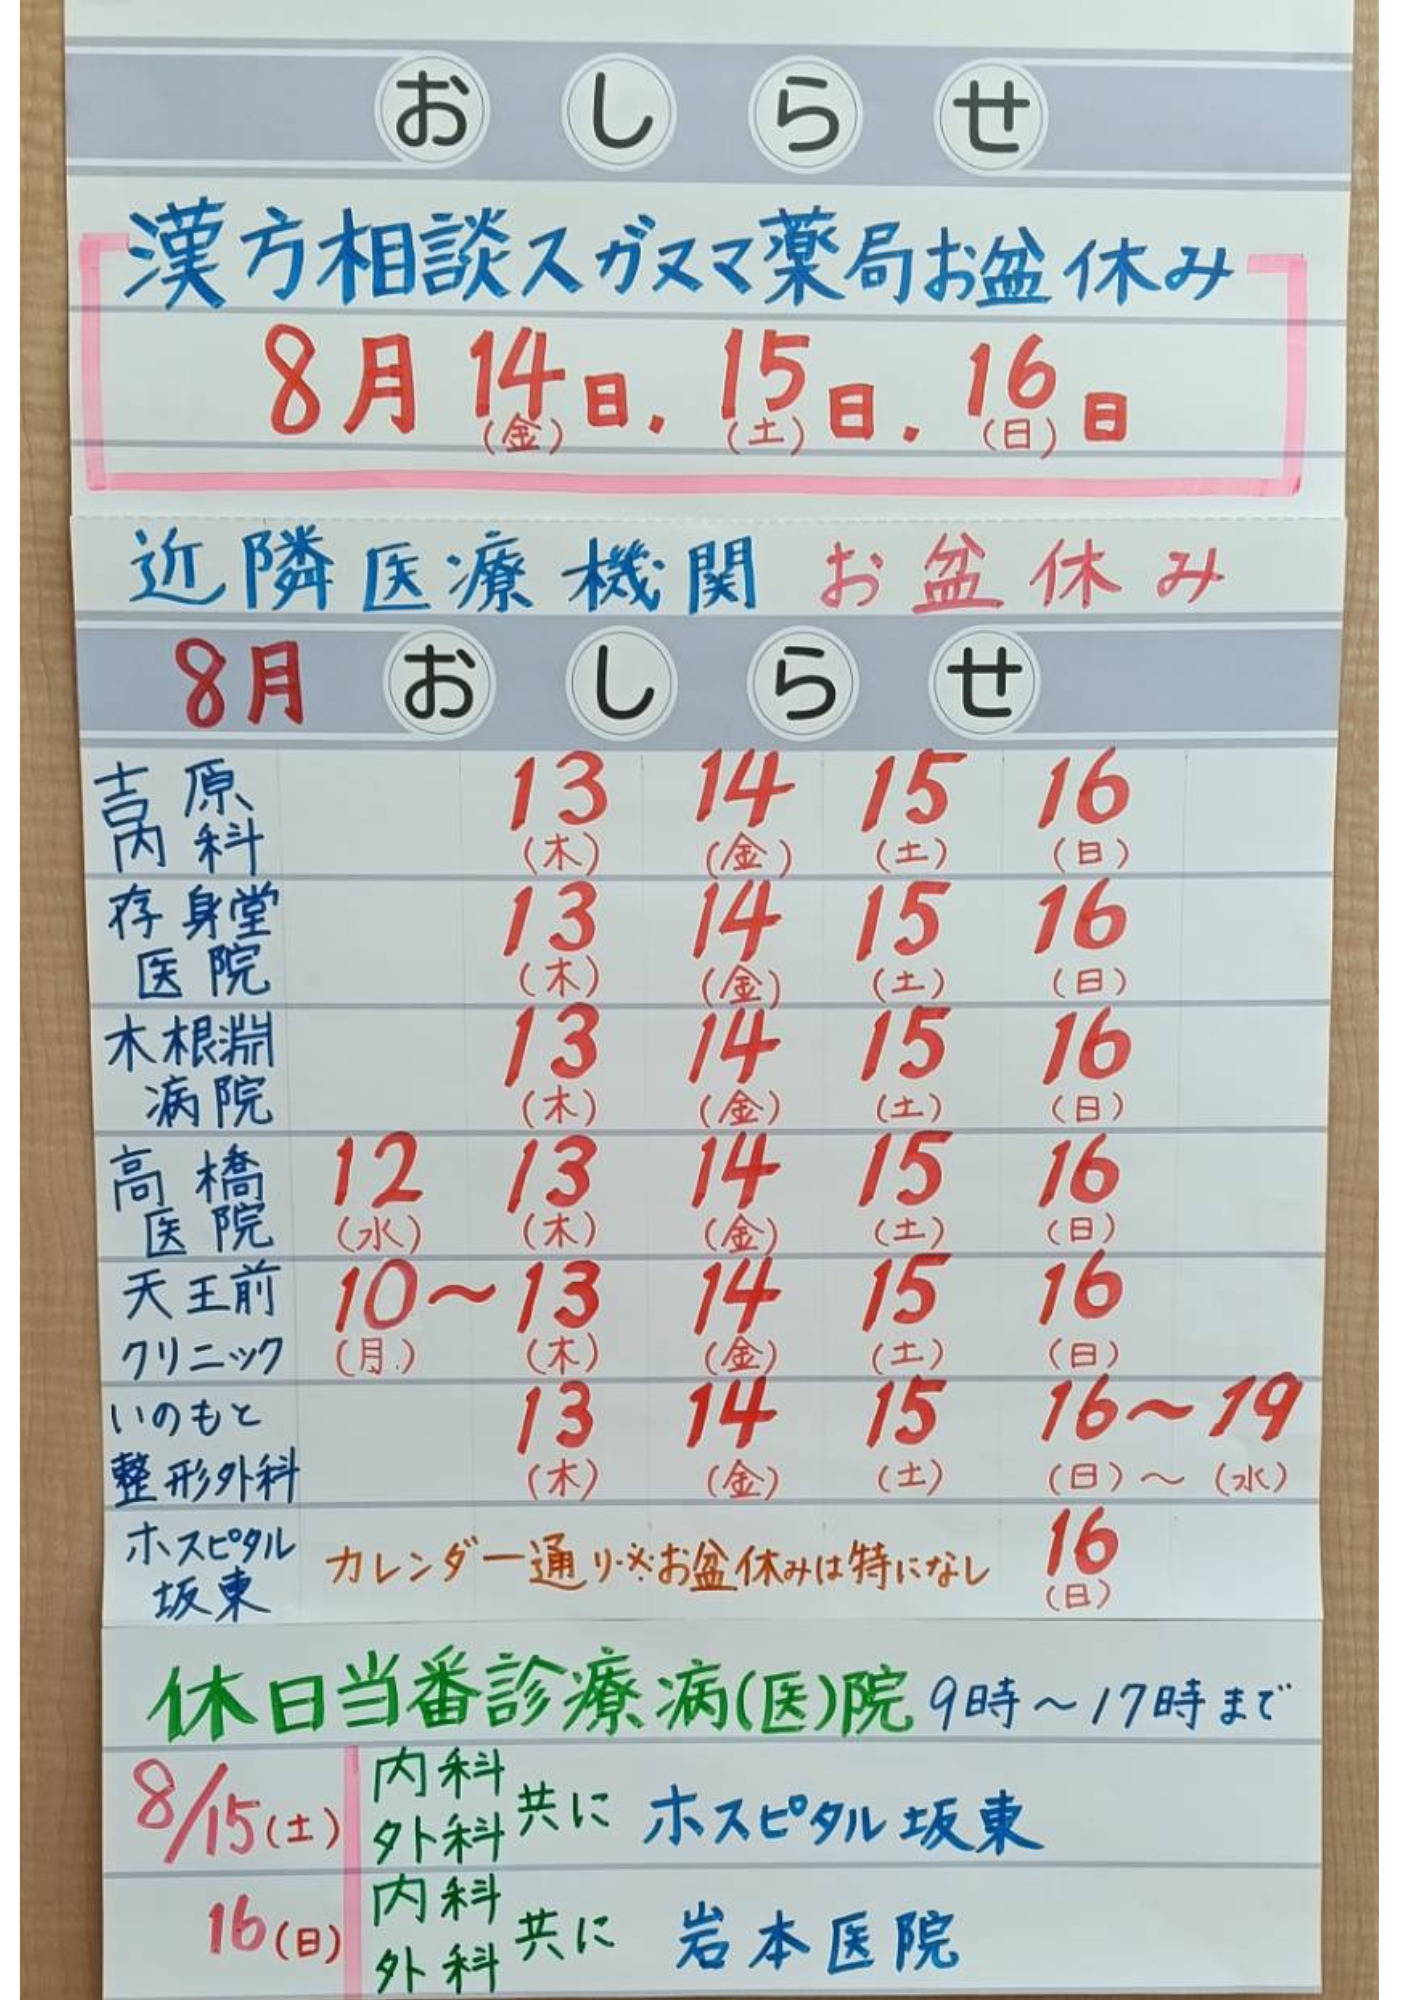 おしらせ
漢方相談スガヌマ薬局お盆休み
8月14日.15日.16日
(金) (土) (日)
近隣医療機関 お盆休み
8月 おしらせ
吉原 13 14 15 16
内科 (木) (金) (土) (日)
存身堂 13 14 15 16
医院 (木) (金) (土) (日)
木根淵 13 14 15 16
病院 (木) (金) (土) (日)
高橋 12 13 14 15 16
医院 (水) (木) (金) (土) (日)
天王前 10〜13 14 15 16
クリニック (月) (木) (金) (土) (日)
いのもと 13 14 15 16〜19
整形外科 (木) (金) (土) (日)〜(水)
ホスピタル カレンダー通り※お盆休みは特になし 16
坂東 (日)
休日当番診療病(医)院 9時〜17時まで
8/15(土) 内科 外科 共に ホスピタル坂東
16(日) 内科 外科 共に 岩本医院